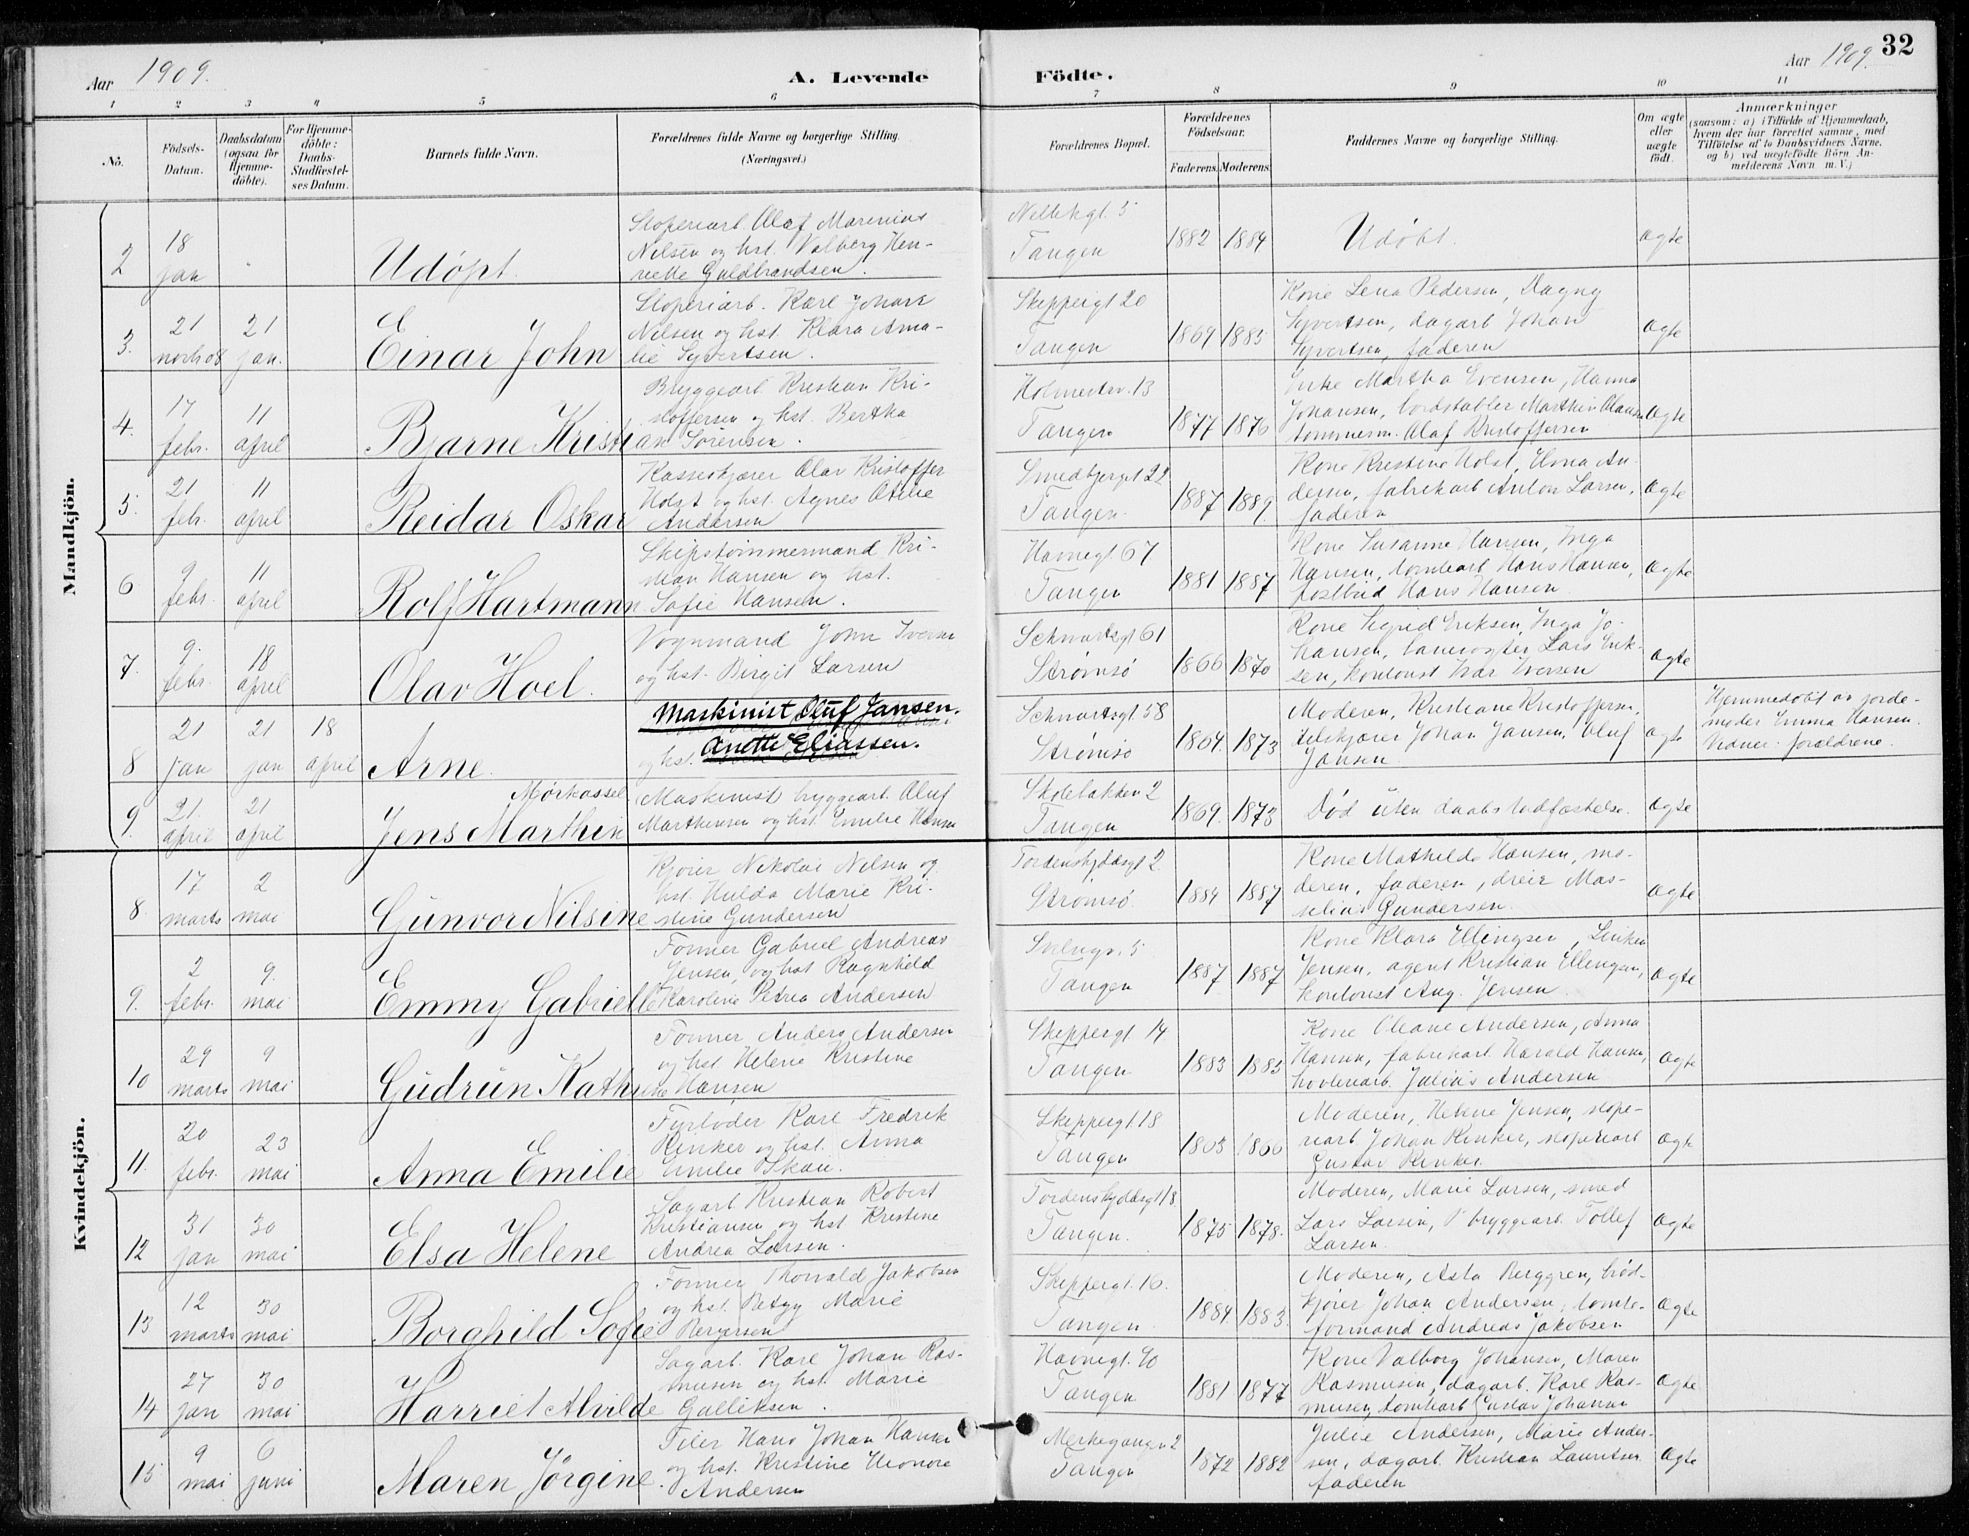 32
Aar 1909.
A. Levende Födte.
Aar 1909.
1 2 3 4 5 6 7 8 9 10 11
No.
Födsels-Datum.
Daabsdatum (ogsaa for Hjemme-döbte).
For Hjemme-döbte: Daabs-Stadfæstel-ses Datum.
Barnets fulde Navn.
Forældrenes fulde Navne og borgerlige Stilling.
(Næringsvei.)
Forældrenes Bopæl.
Forældrenes Födselsaar.
Faderens. Moderens.
Faddernes Navne og borgerlige Stilling.
Om ægte eller uægte födt.
Anmærkninger
(saasom: a) i Tilfælde af Hjemmedaab, hvem der har forrettet samme, med Tilföielse af to Daabsvidners Navne, og b) ved uægtefödte Börn Anmelderens Navn m. V.)
Mandkjön.
2 18 jan Udøpt. Støperiarb. Olaf Marenius
Nilsen og hst. Valborg Hen-
riette Guldbrandsen.
Tangen 1882 1884 Udøbt. Ægte
3. 21 novbr 08 21 jan. Einar John Støperiarb. Karl Johan
Nilsen og hst. Klara Ama-
lie Syvertsen.
Skippergt 20
Tangen 1869 1885 Kone Lena Pedersen, Dagny
Syvertsen, dagarb Johan
Syvertsen, faderen Ægte
4. 17 febr. 11 april Bjarne Kristian Bryggearb Kristian Kri-
stoffersen og hst. Bertha
Sørensen.
Holmestrv. 13
Tangen 1877 1876 Enke Martha Evensen, Hanna
Johansen, bordstabler Marthin Olausen
tømmerm. Olaf Kristoffersen Ægte
5. 21 febr. 11 april Reidar Oskar Kasseskjører Olav Kristoffer
Holst og hst. Agnes Otilie
Andersen
Smedbjergt 22
Tangen. 1887 1889. Kone Kristine Holst, Anna An-
dersen, fabrikarb Anton Larsen,
faderen Ægte
6 9 febr. 11 april Rolf Hartmann Skipstømmermand Kri-
stian Hansen og hst.
Sofie Hansen.
Havnegt 67
Tangen 1881 1887 Kone Susanne Hansen, Inga
Hansen, tomtearb Hans Hansen,
postbud Hans Hansen Ægte
7. 9. febr. 18 april Olav Hoel. Vognmand John Iversen
og hst. Birgit Larsen
Schwartzgt 61
Strømsø 1866 1870 Kone Sigrid Eriksen, Inga Jo-
hansen, banevogter Lars Erik-
sen, kontorist Ivar Iversen Ægte
8 21 jan 21 jan 18 april Arne. Maskinist Oluf Jansen.
og hst. Anette Eliassen.
Schwartzgt 58
Strømsø 1864. 1873 Moderen, Kristiane Kristoffersen,
Johan Jansen, Oluf
Jansen Ægte
Hjemmedøbt av jorde-
moder Emma Hansen.
Vidner: forældrene.
9. 21. april 21 april Jens Marthin Mørkassel Maskinist bryggearb. Oluf
Marthinsen og hst. Emilie Hansen
Skolebakken 2
Tangen 1869. 1873 Død uten daabs stadfæstelse. Ægte
Kvindekjön.
8. 17 marts 2 mai Gunvor Nilsine Kjører Nikolai Nilsen og
hst. Hulda Marie Kri-
stine Gundersen
Tordenskjoldsgt 2
Strømsø. 1884 1887 Kone Mathilde Hansen, mo-
deren, faderen, dreier Mas-
silius Gundersen. Ægte
9. 2 febr. 9. mai Emmy Gabrielle Former Gabriel Andreas
Jensen, og hst Ragnhild
Karoline Petrea Andersen
Svelvigv. 5
Tangen 1887 1887 Kone Klara Ellingsen,
Jensen, agent Kristian Ellingsen,
kontorist Aug. Jensen Ægte
10 29 marts 9 mai Gudrun Kathrine Former Anders Andersen
og hst Helene Kristine
Hansen
Skippergt. 14
Tangen. 1883 1885 Kone Oleane Andersen, Anna
Hansen, fabrikarb. Harald Hansen,
høvleriarb. Julius Andersen Ægte
11. 20 febr. 23 mai Anna Emilie Fyrbøder Karl Fredrik
Rinker og hst. Anna
Emilie Skau.
Skippergt. 18
Tangen 1863 1866 Moderen, Helene Jensen, støpe-
riarb Johan Rinker, støperiarb
Gustav Rinker. Ægte
12 31 jan 30 mai Elsa Helene Sagarb Kristian Robert
Kristiansen og hst Kristine
Andrea Larsen.
Tordenskjoldsgt 18
Tangen. 1875 1878. Moderen, Marie Larsen, smed
Lars Larsen, bryggearb. Tollef
Larsen. Ægte
13 12 marts 30 mai Borghild Sofie Former Thorvald Jakobsen
og hst. Betzy Marie
Bergersen
Skippergt. 16.
Tangen. 1884. 1883. Moderen, Asta Berggren, brød-
kjører Johan Andersen, tomte-
formand Andreas Jakobsen Ægte
14 27 jan 30 mai Harriet Alvilde Sagarb. Karl Johan Ras-
musen og hst. Marie
Gulliksen.
Havnegt. 40
Tangen 1881 1877 Kone Valborg Johansen, Maren
Rasmusen, dagarb. Karl Ras-
musen, tomtearb Gustav Johansen Ægte
15 9 mai 6 juni Maren Jørgine. Filer Hans Johan Hansen
og hst. Kristine Eleonore
Andersen
Merkegangen 2
Tangen 1872 1882 Julie Andersen, Marie Ander-
sen, dagarb. Kristian Lauritsen
faderen Ægte